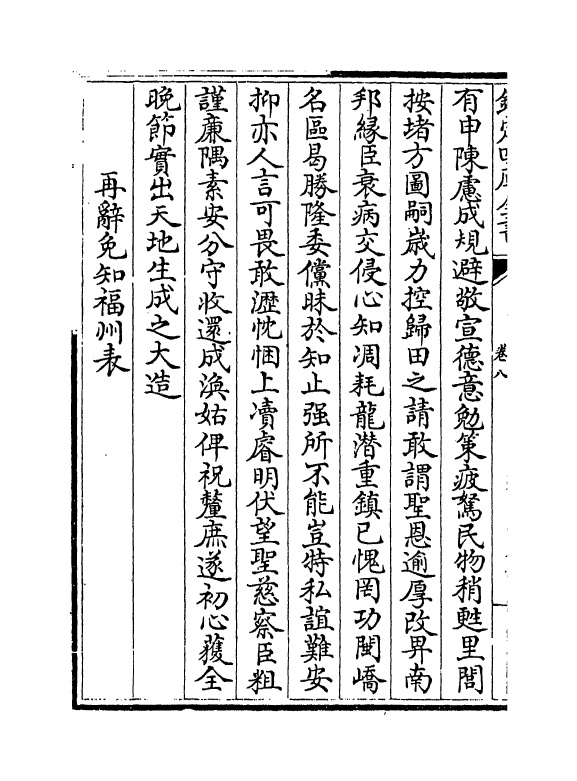 卷八
有申陳慮成規避敬宣德意勉策疲駑民物稍甦里閭
按堵方圖嗣嵗力控歸田之請敢謂聖恩逾厚改畀南
邦縁臣衰病交侵心知凋耗龍潛重鎮已愧罔功閩嶠
名區曷勝隆委儻昧於知止强所不能豈特私誼難安
抑亦人言可畏敢瀝忱悃上凟睿明伏望聖慈察臣粗
謹廉隅素安分守收還成渙姑俾祝釐庶遂初心獲全
晚節實出天地生成之大造
再辭免知福州表